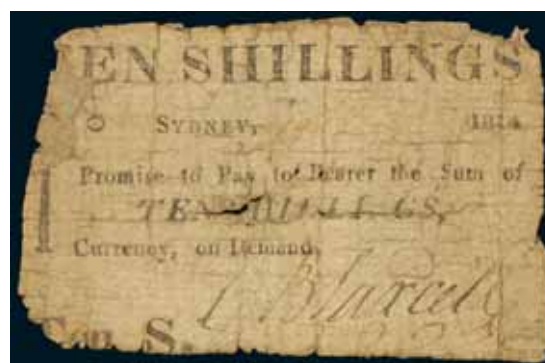 EN SHILLINGS
SYDNEY, 181
Promise to Pay to Bearer the Sum of
TEN SHILLINGS,
Currency, on Demand.
S.